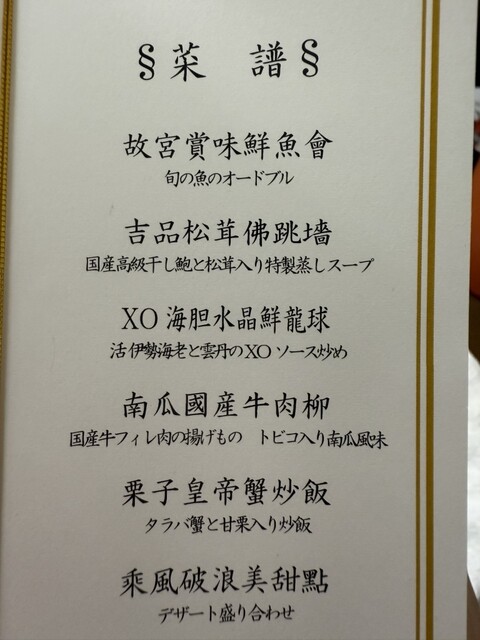 §菜 譜§
故宮賞味鮮魚會
旬の魚のオードブル
吉品松茸佛跳墻
国産高級干し鮑と松茸入り特製蒸しスープ
XO海胆水晶鮮龍球
活伊勢海老と雲丹のXOソース炒め
南瓜國産牛肉柳
国産牛フィレ肉の揚げもの トビコ入り南瓜風味
栗子皇帝蟹炒飯
タラバ蟹と甘栗入り炒飯
乘風破浪美甜點
デザート盛り合わせ